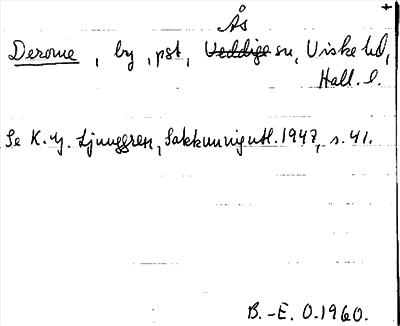 Ås
Derome, by, pst, Veddige sn, Viske hd,
Hall. l.
Se K. G. Ljunggren, Sakkunnigutl. 1947, s. 41.
B.-E. O. 1960.